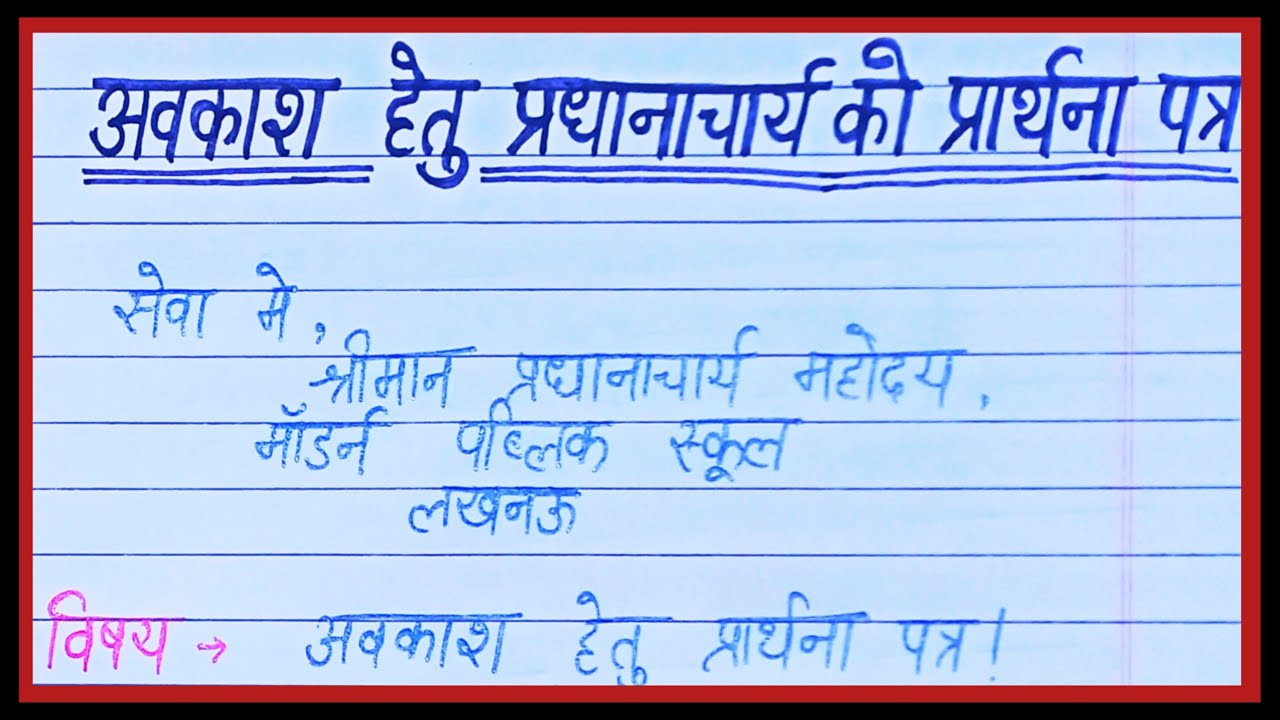 अवकाश हेतु प्रधानाचार्य को प्रार्थना पत्र
सेवा मे,
श्रीमान प्रधानाचार्य महोदय,
मॉडर्न पब्लिक स्कूल
लखनऊ
विषय → अवकाश हेतु प्रार्थना पत्र।